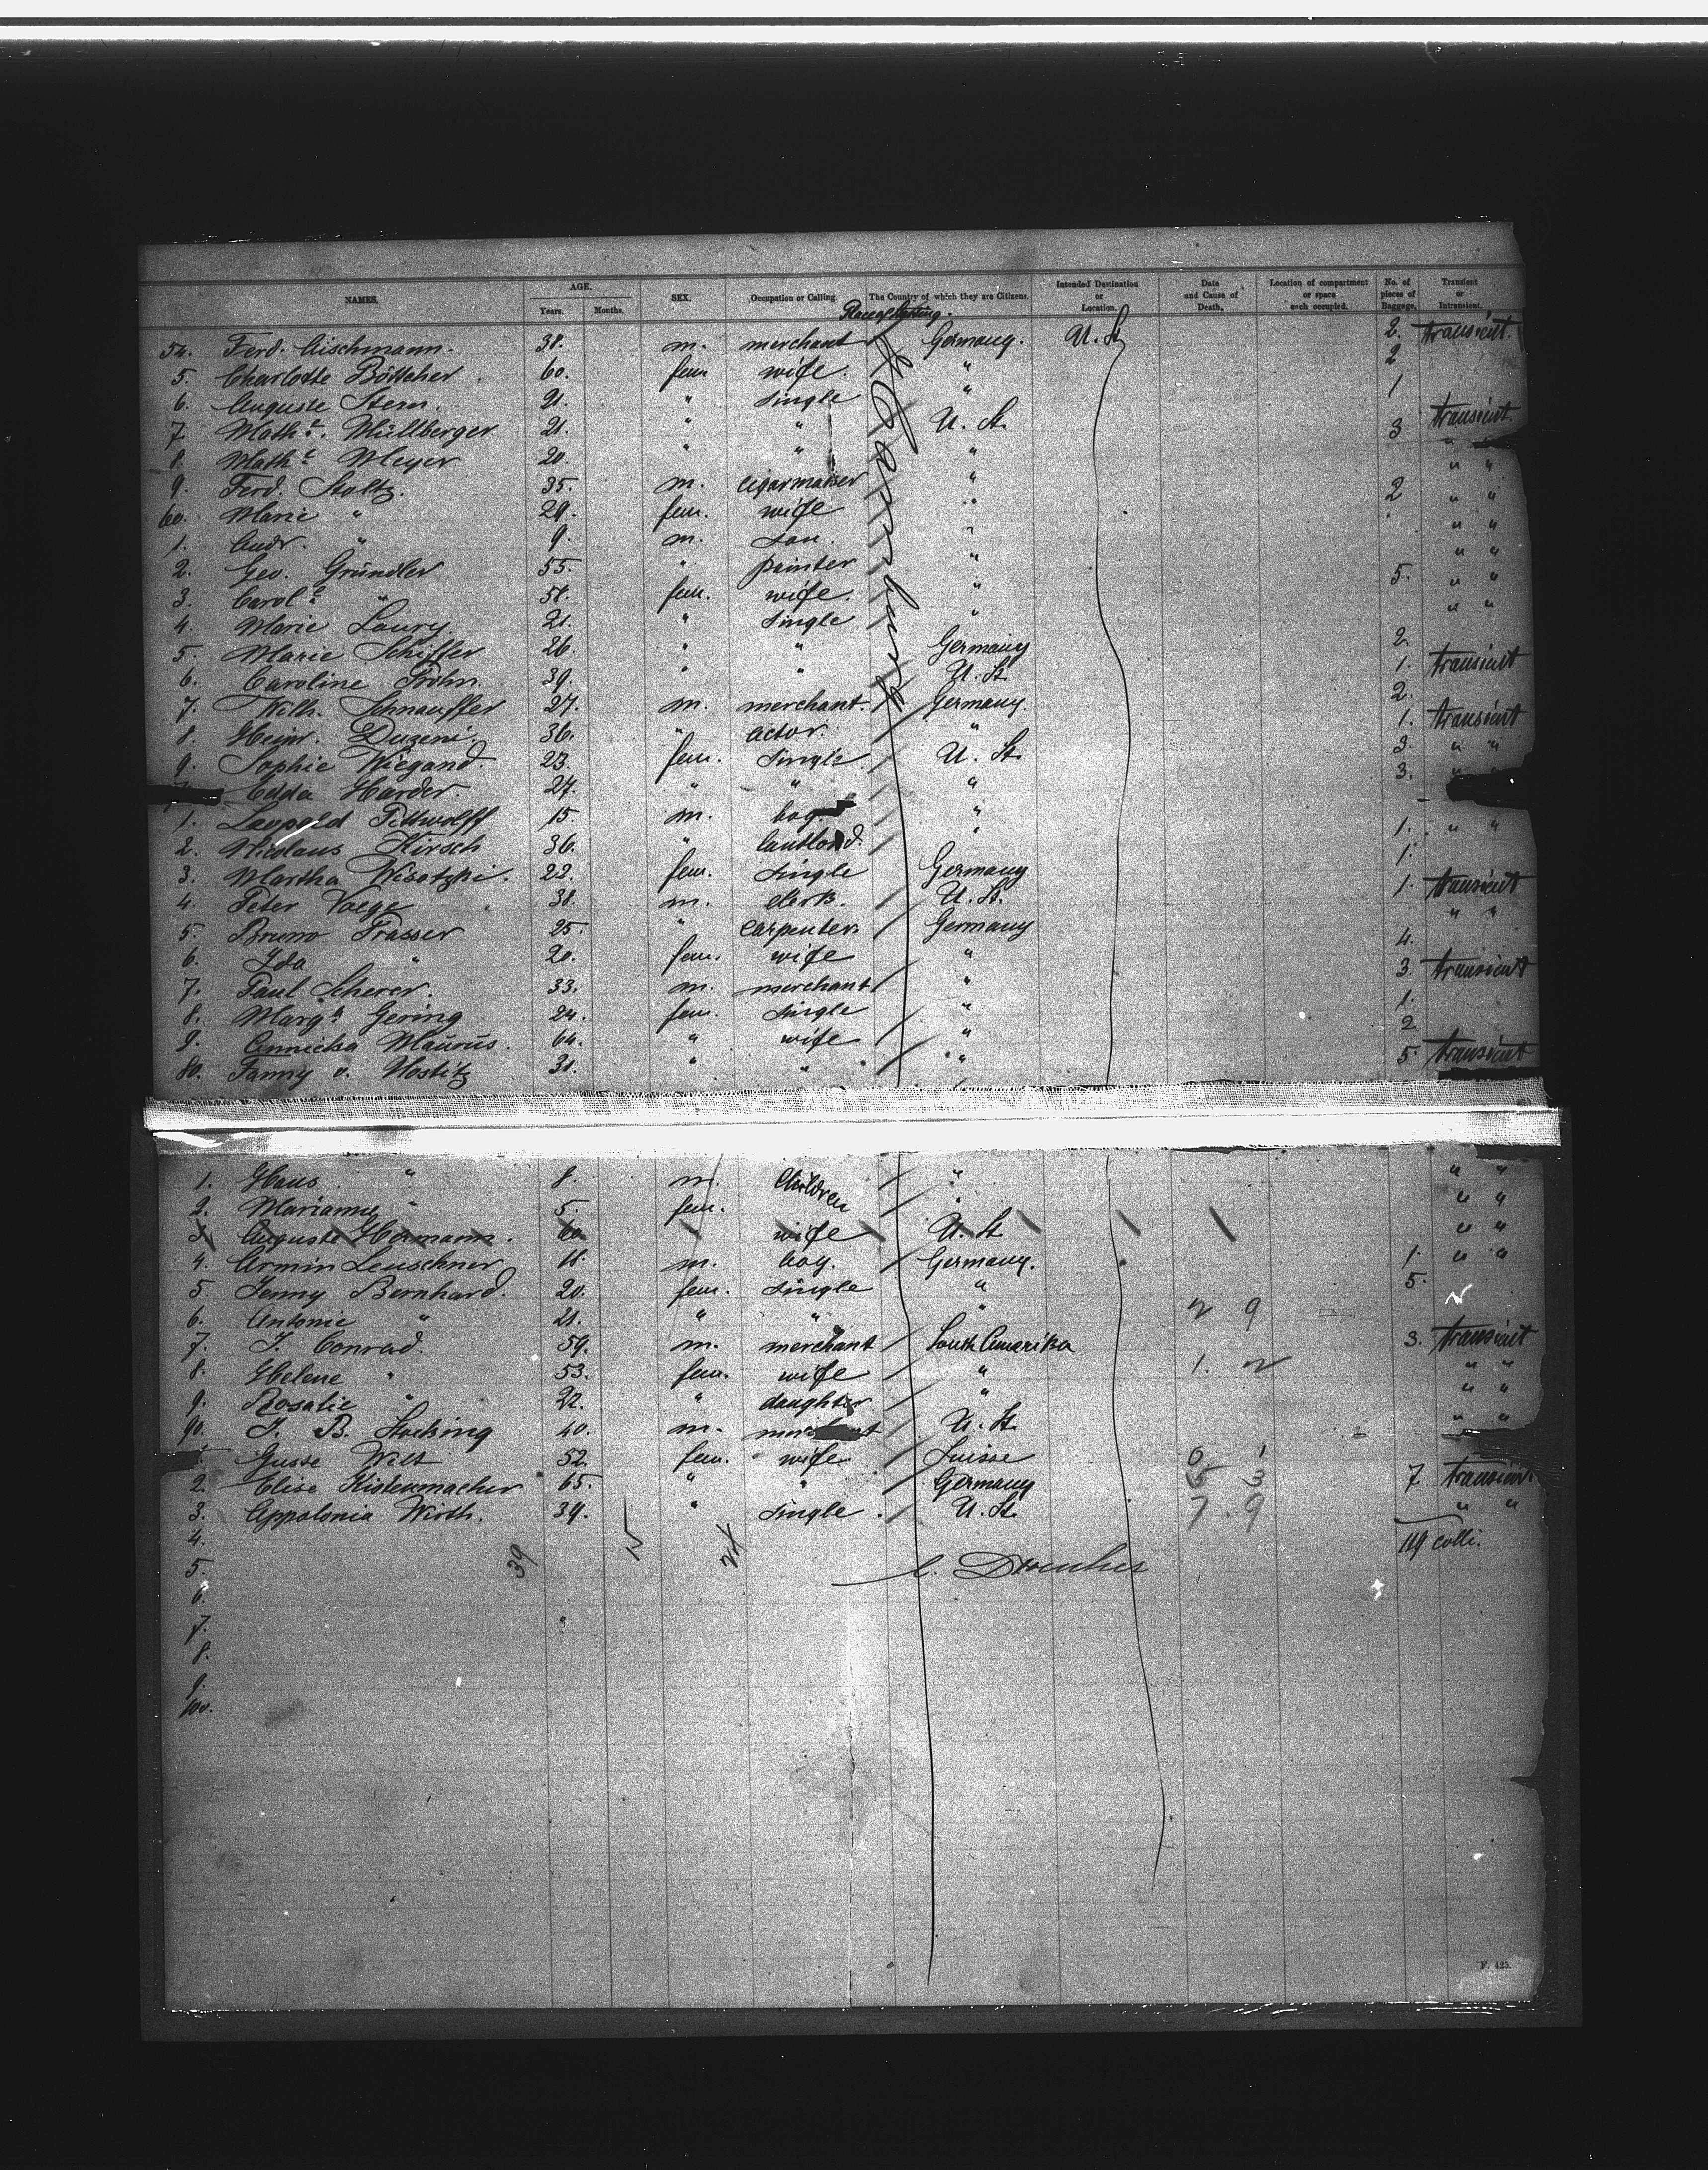 NAMES. AGE. Years. Months. SEX. Occupation or Calling. The Country of which they are Citizens. Intended Destination or Location. Date and Cause of Death. Location of compartment or space each occupied. No. of pieces of Baggage. Transient or Intransient.
Place of
54. Ferd. Aischmann. 38. m. merchant Germany. U. St. 2. transient
5. Charlotte Böttcher. 60. fem wife. " 2
6. Auguste Stern. 21. " single " 1
7. Math e. Müllberger 21. " " U. St. 3 transient
8. Math e. Meyer 20. " " " " "
9. Ferd. Stoltz. 35. m. cigarmaker " " "
60. Marie " 29. fem. wife " 2 " "
1. Andr. " 9. m. son. " " "
2. Geo. Gründler 55. " painter " " "
3. Carol e. " 58. fem. wife. " 5. " "
4. Marie Loury 21. " single " " "
5. Marie Schiffer 26. " " Germany 2.
6. Caroline Prohn 39. " " U. St. 1. transient
7. Wilh. Schnauffer 27. m. merchant. Germany. 2.
8. Heinr. Duzeni. 36. " actor. " 1. transient
9. Sophie Wiegand. 23. fem. single U. St. 3. " "
Edda Harder. 27. " " " 3.
1. Leopold Pittwolff 15. m. boy " " "
2. Nicolaus Kirsch 36. " lantlord. " 1.
3. Martha Wisotzki. 22. fem. single Germany 1.
4. Peter Voege 38. m. clerk. U. St. 1. transient
5. Bruno Prasser 25. " carpenter Germany " "
6. Ida " 20. fem. wife " 4.
7. Paul Scherer. 33. m. merchant " 3. transient
8. Marg a. Gering 24. fem. single " 1.
9. Annicka Maurus. 64. " wife " 2
80. Fanny v. Nostitz 31. " " " 5. transient
1. Hans " 8. m. Children " " "
2. Marianne " 5. fem. " " "
3. Auguste Hermann. 60 wife U. St. " "
4. Armin Leuschner 18. m. boy. Germany. 1. " "
5 Jenny Bernhard. 20. fem. single " 5.
6. Antonie " 21. " " " 2 9
7. J. Conrad. 59. m. merchant South Amerika 3. transient
8. Helene " 53. fem. wife " 1. 2 " "
9. Rosalie " 22. " daughter " " "
90. J. B. Stocking 40. m. U. St. " "
Gusse Wilt 52. fem. wife Suisse 0. 1
2. Elise Kistenmacher 65. " " Germany 5 3 7 transient
3. Appolonia Wirth. 39. " single. U. St. 7. 9 " "
4. 119 colli.
5. 39
6.
7.
8.
9.
100.
F. 425.